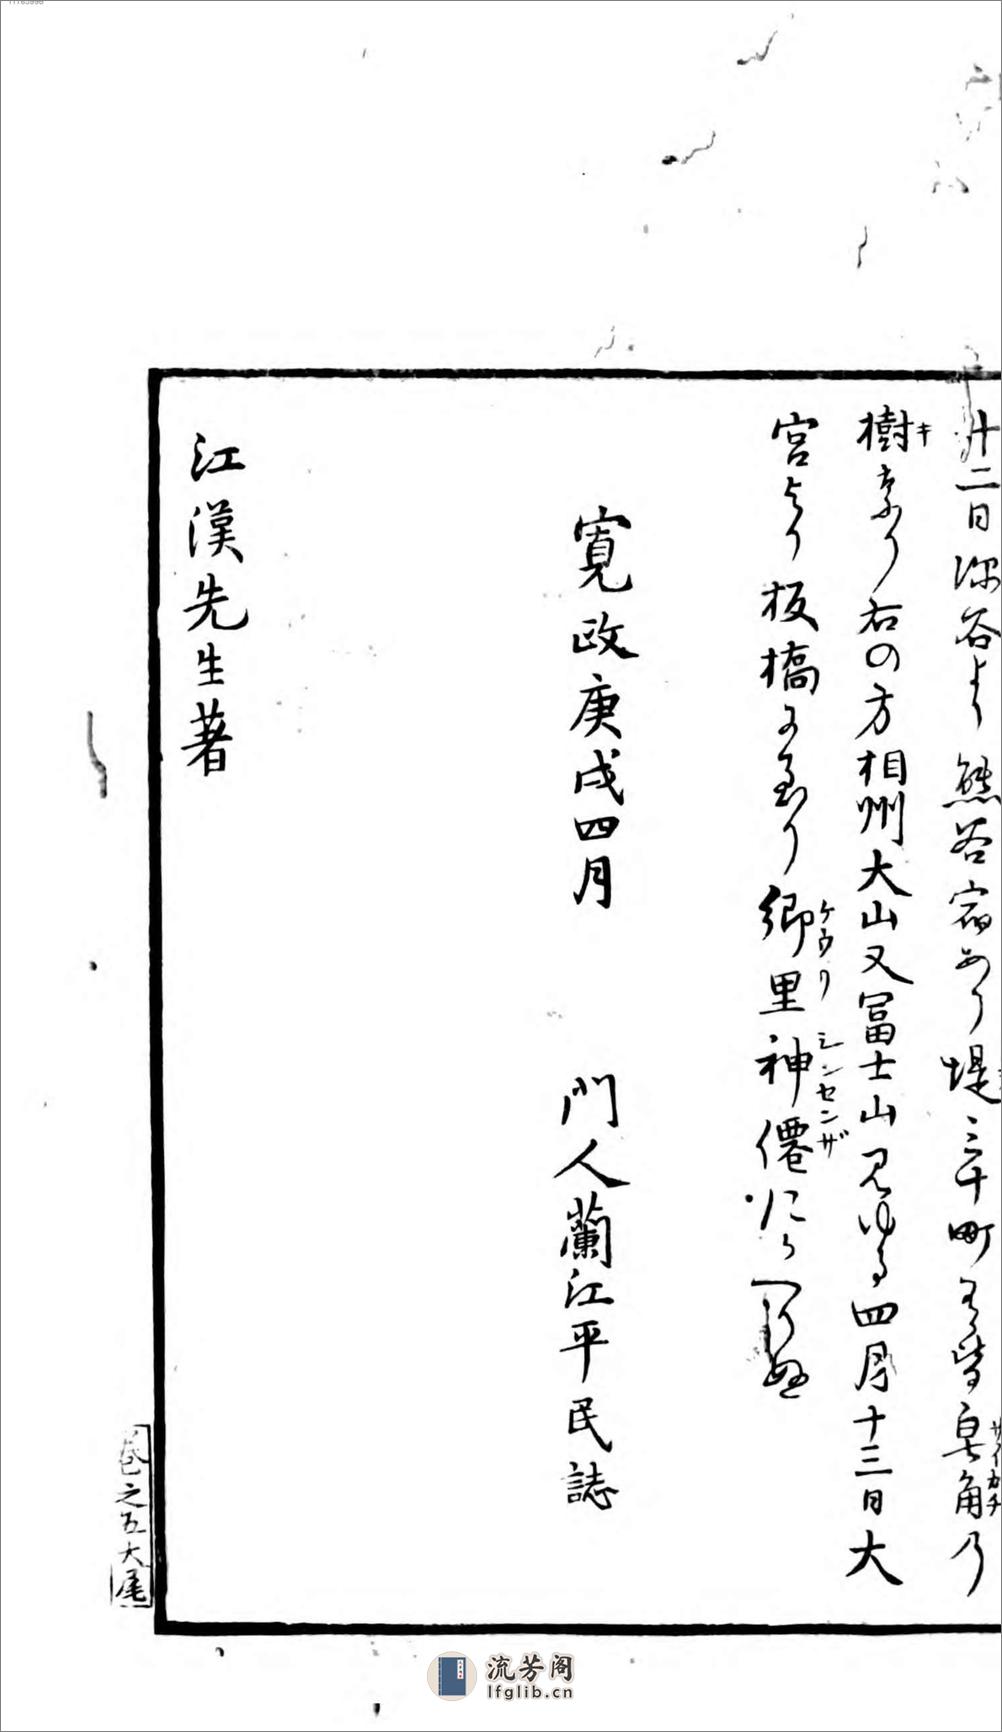 十二日深谷より熊谷宿あり堤三十町もう皆皂角乃
サイカチ
樹なり右の方相州大山又冨士山見ゆる四月十三日大
キ
宮より板橋に至り郷里神僊坐にかへりぬ
ケウリ シンセンザ
寛政庚戌四月 門人蘭江平民誌
江漢先生著
巻之五大尾
流芳阁
lfglib.cn